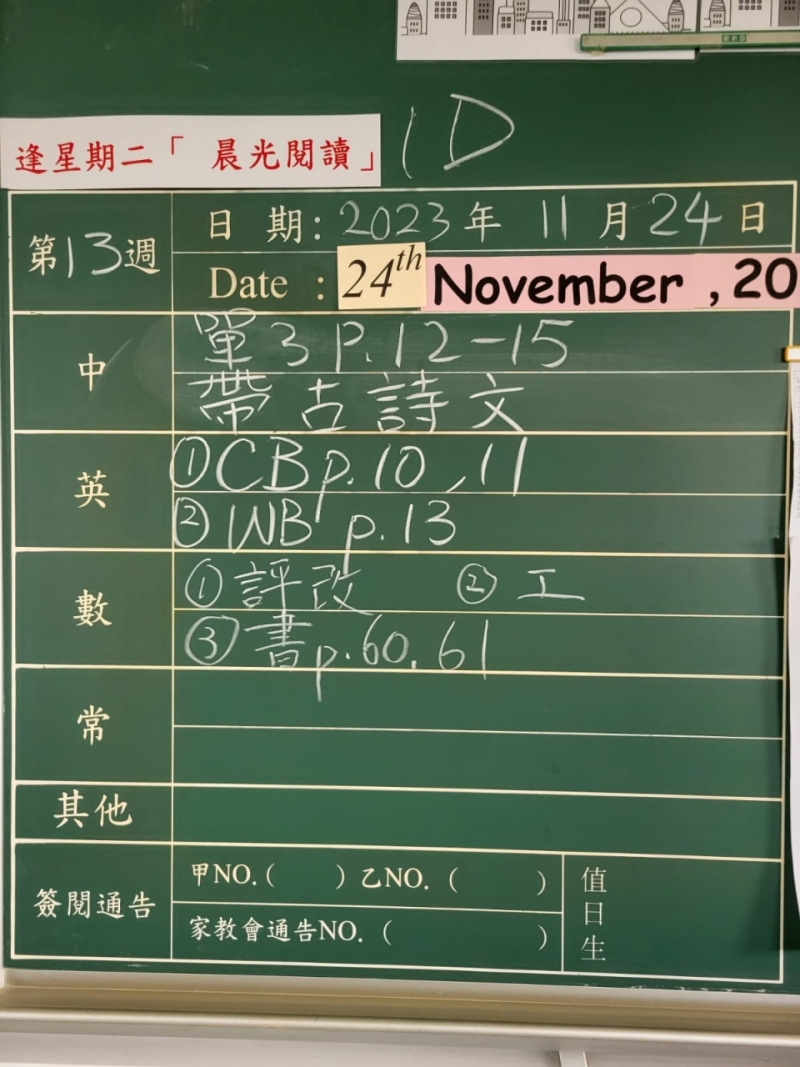 逢星期二「 晨光閱讀」 1D
第13週
日 期: 2023年 11月24日
Date : 24th November , 20
中
單3 P.12-15
帶古詩文
英
①CB p.10 , 11
②WB p.13
數
①評改 ②工
③書p.60, 61
常
其他
簽閱通告
甲NO.( ) 乙NO. ( )
家教會通告NO. ( )
值日生